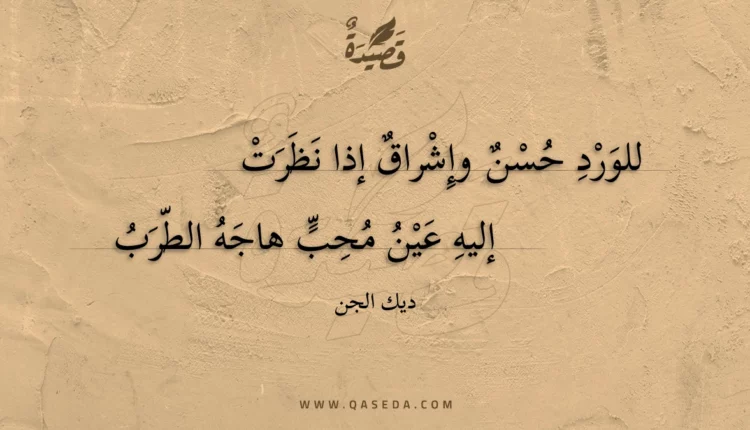 قَصِيْدَةٌ
للوَرْدِ حُسْنٌ وإِشْراقٌ إذا نَظَرَتْ
إليهِ عَيْنُ مُحِبٍّ هاجَهُ الطّرَبُ
ديك الجن
WWW.QASEDA.COM